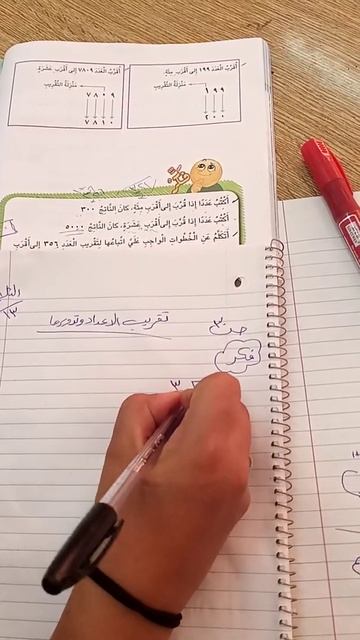 أُقَرِّبُ العَدَدَ ١٩٩ إلى أَقْرَبِ مِئَةٍ.
مَنْزِلَةُ التَّقْرِيبِ
١ ٩ ٩
٢ ٠ ٠
أُقَرِّبُ العَدَدَ ٧٨٠٩ إلى أَقْرَبِ عَشَرَةٍ.
مَنْزِلَةُ التَّقْرِيبِ
٧ ٨ ٠ ٩
٧ ٨ ١ ٠
أَكْتُبُ عَدَدًا إذا قُرِّبَ إلى أَقْرَبِ مِئَةٍ، كانَ النّاتِجُ ٣٠٠
أَكْتُبُ عَدَدًا إذا قُرِّبَ إلى أَقْرَبِ عَشَرَةٍ، كانَ النّاتِجُ ٥٠٠٠
أَتَكَلَّمُ عَنِ الخُطُواتِ الواجِبِ عَلَيَّ اتِّباعُها لِتَقْرِيبِ العَدَدِ ٣٥٦ إلى أَقْرَبِ
تقريب الاعداد وتدويرها
صـ٣٠
فكر
٣